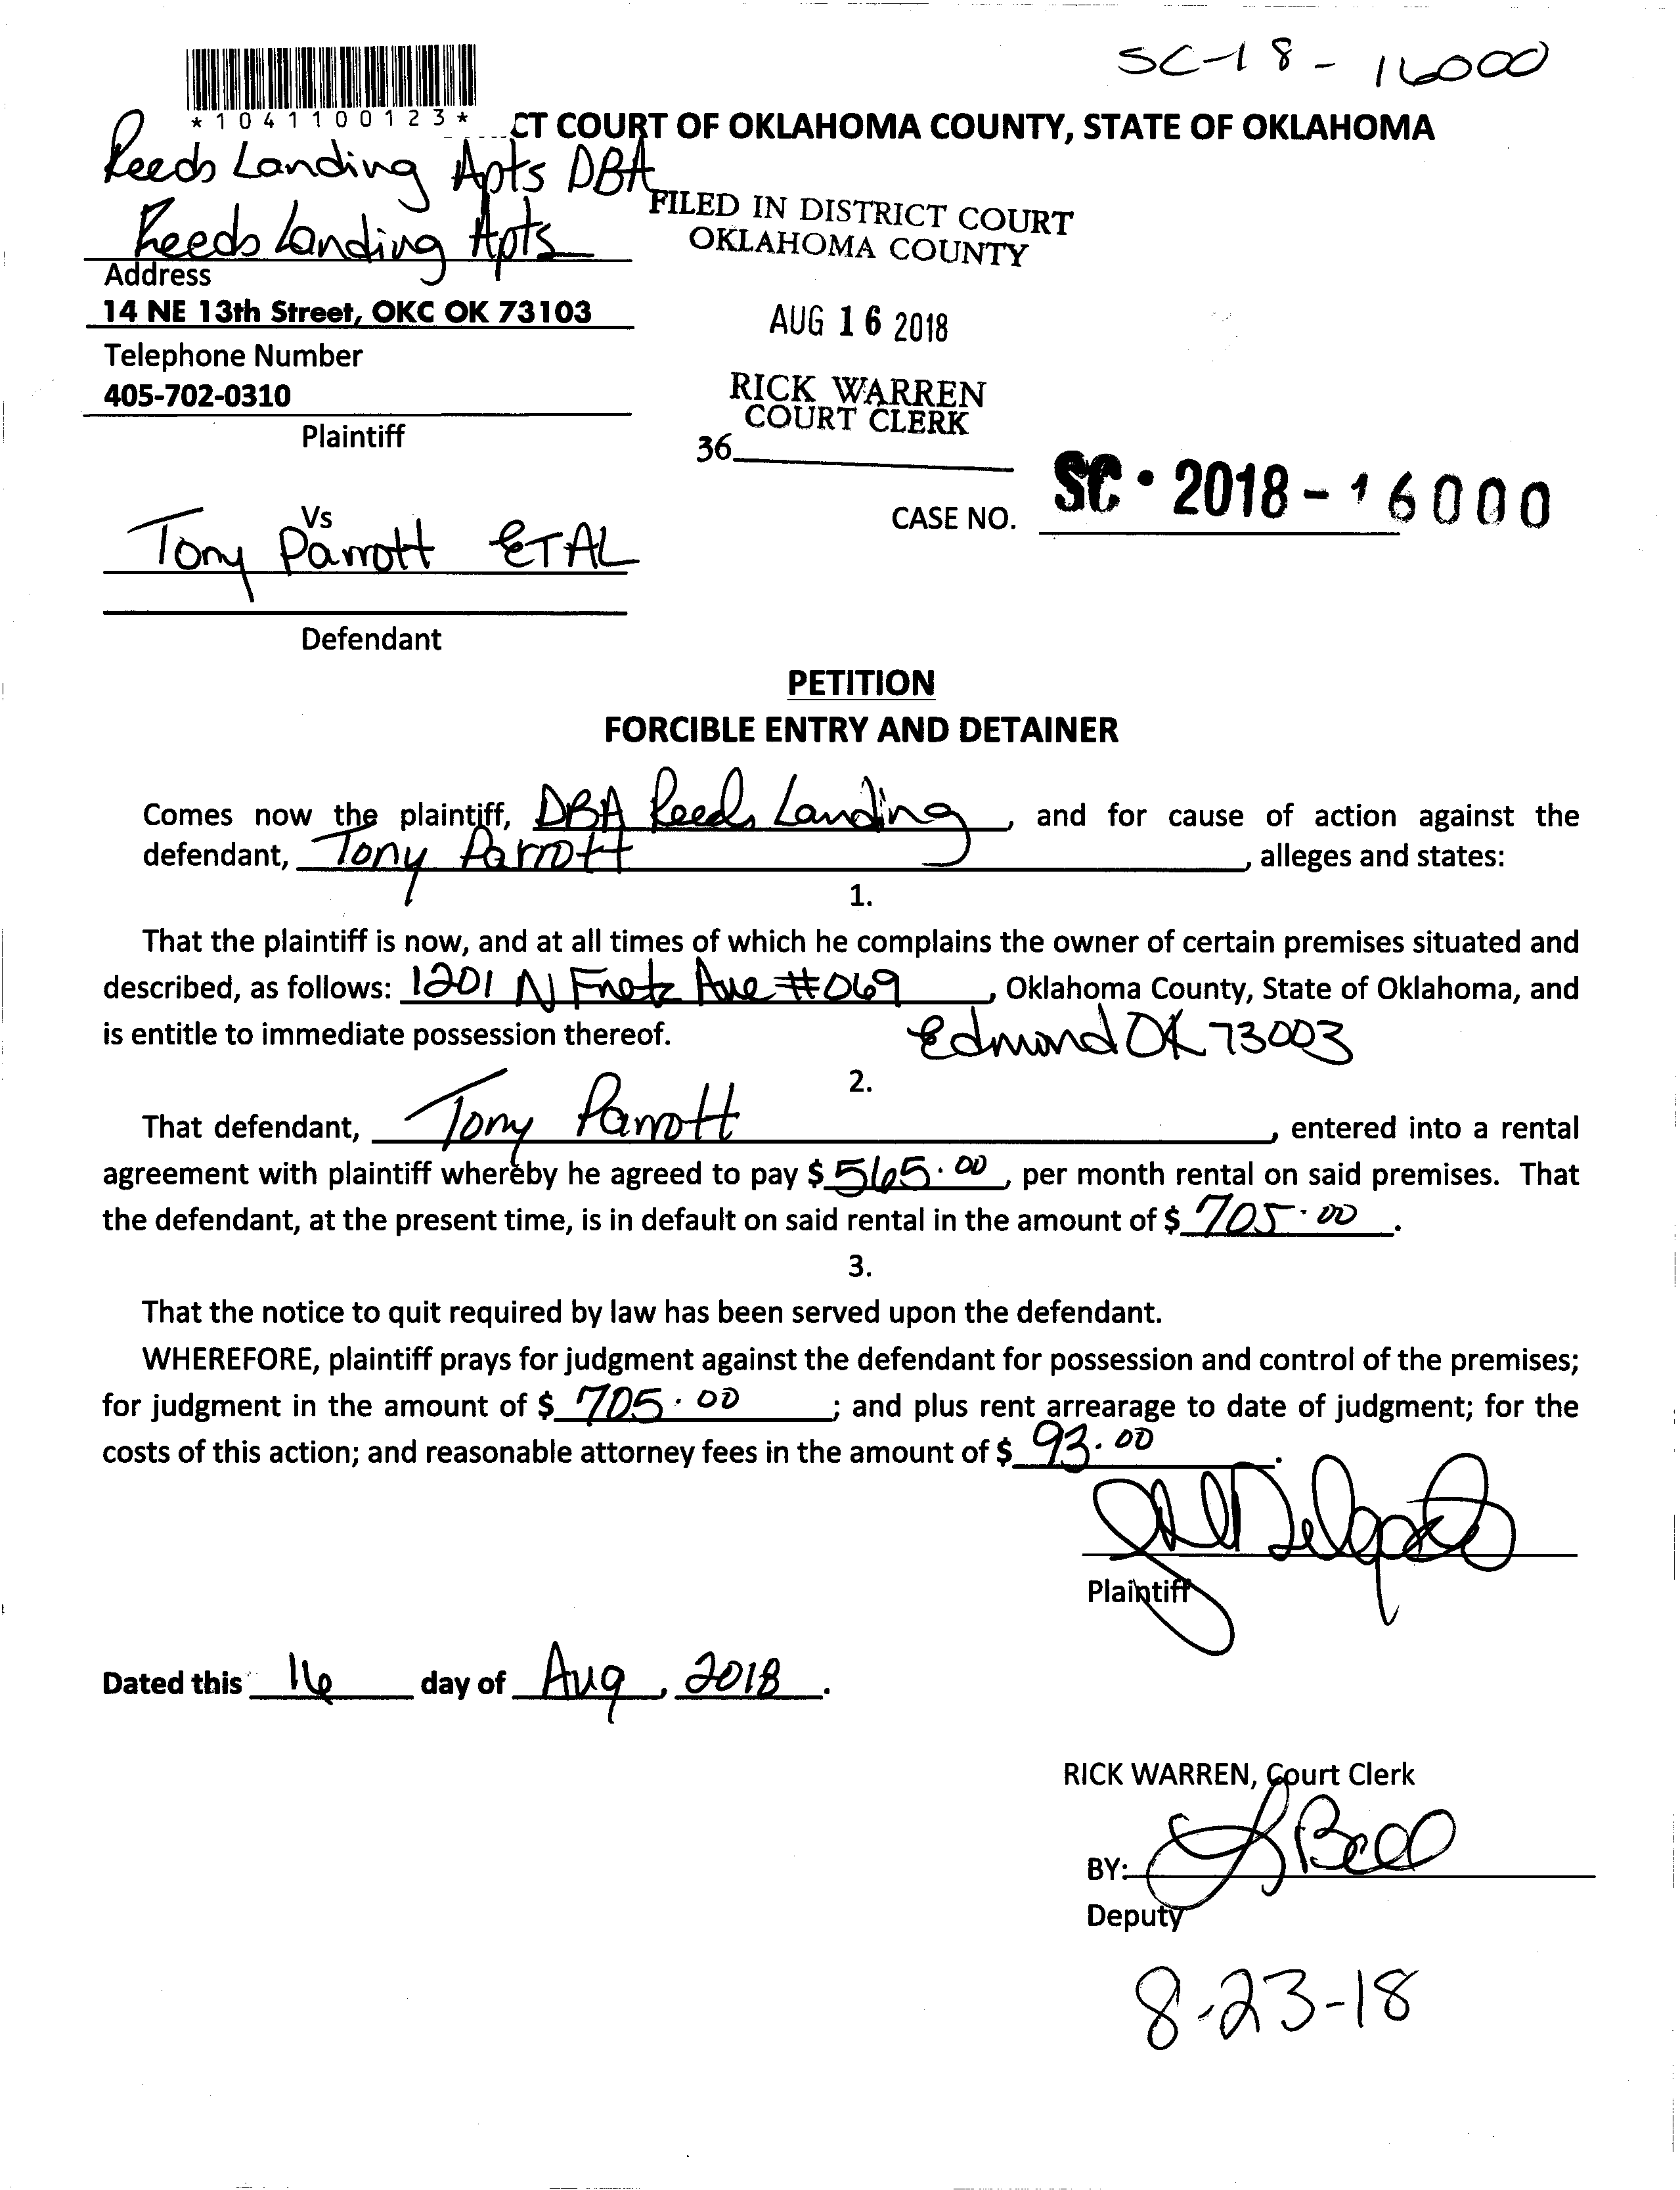 SC-18-16000
*1041100123*
CT COURT OF OKLAHOMA COUNTY, STATE OF OKLAHOMA
Reeds Landing Apts DBA
Reeds Landing Apts
FILED IN DISTRICT COURT
OKLAHOMA COUNTY
Address
14 NE 13th Street, OKC OK 73103
AUG 16 2018
Telephone Number
405-702-0310
RICK WARREN
COURT CLERK
Plaintiff
36
Vs
CASE NO. SC·2018-16000
Tony Parrott ETAL
Defendant
PETITION
FORCIBLE ENTRY AND DETAINER
Comes now the plaintiff, DBA Reeds Landing, and for cause of action against the
defendant, Tony Parrott, alleges and states:
1.
That the plaintiff is now, and at all times of which he complains the owner of certain premises situated and
described, as follows: 1201 N Fretz Ave #069, Oklahoma County, State of Oklahoma, and
is entitle to immediate possession thereof. Edmond OK 73003
2.
That defendant, Tony Parrott, entered into a rental
agreement with plaintiff whereby he agreed to pay $ 565.00, per month rental on said premises. That
the defendant, at the present time, is in default on said rental in the amount of $ 705.00.
3.
That the notice to quit required by law has been served upon the defendant.
WHEREFORE, plaintiff prays for judgment against the defendant for possession and control of the premises;
for judgment in the amount of $ 705.00; and plus rent arrearage to date of judgment; for the
costs of this action; and reasonable attorney fees in the amount of $ 93.00.
Plaintiff
Dated this 16 day of Aug, 2018.
RICK WARREN, Court Clerk
BY: L Bell
Deputy
8-23-18